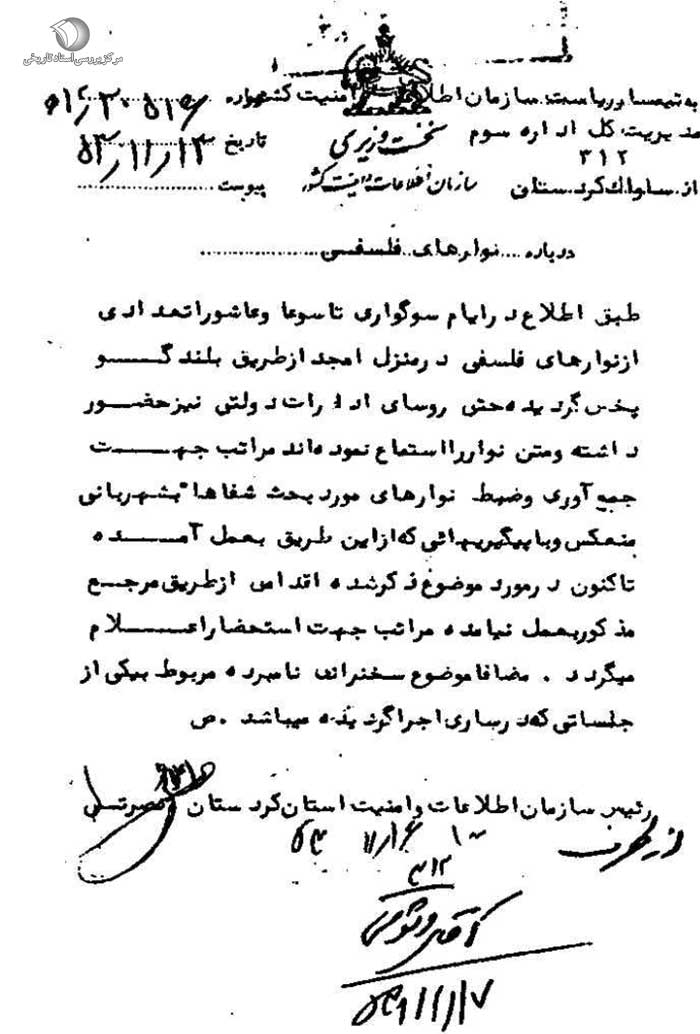 مرکز بررسی اسناد تاریخی
به تیمسار ریاست سازمان اطلاعات و امنیت کشور شماره
مدیریت کل اداره سوم ۳۱۲
نخست وزیری
تاریخ ۵۳/۱۱/۱۳
از ساواک کردستان
سازمان اطلاعات و امنیت کشور
پیوست
درباره .... نوارهای فلسفی
طبق اطلاع در ایام سوگواری تاسوعا و عاشورا تعدادی
از نوارهای فلسفی در منزل امجد از طریق بلندگو
پخش گردیده حتی روسای ادارات دولتی نیز حضور
داشته و متن نوار را استماع نموده اند مراتب جهت
جمع آوری و ضبط نوارهای مورد بحث شفاها" بشهربانی
منعکس و با پیگیریهائی که از این طریق بعمل آمده
تاکنون در مورد موضوع ذکر شده اقدامی از طریق مرجع
مذکور بعمل نیامده مراتب جهت استحضار اعلام
میگردد . مضافا موضوع سخنرانی نامبرده مربوط بیکی از
جلساتی که در ساری اجرا گردیده میباشد . ص
رئیس سازمان اطلاعات و امنیت استان کردستان
از طرف
۳۱۲
آقای